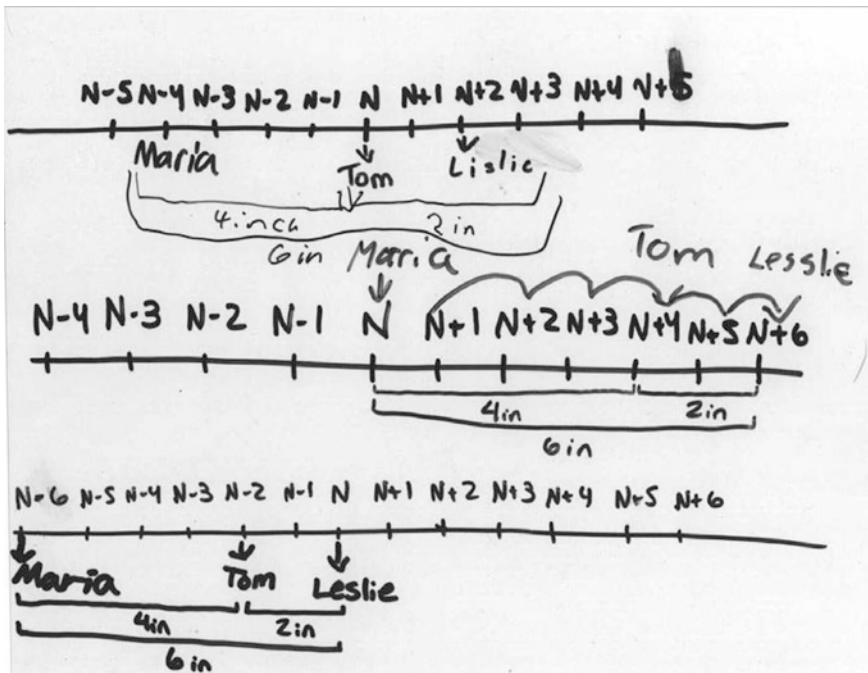 N-5 N-4 N-3 N-2 N-1 N N+1 N+2 N+3 N+4 N+5
Maria Tom Lislic
4 inch 2 in
6 in
Maria Tom Lesslie
N-4 N-3 N-2 N-1 N N+1 N+2 N+3 N+4 N+5 N+6
4in 2in
6in
N-6 N-5 N-4 N-3 N-2 N-1 N N+1 N+2 N+3 N+4 N+5 N+6
Maria Tom Leslie
4in 2in
6in